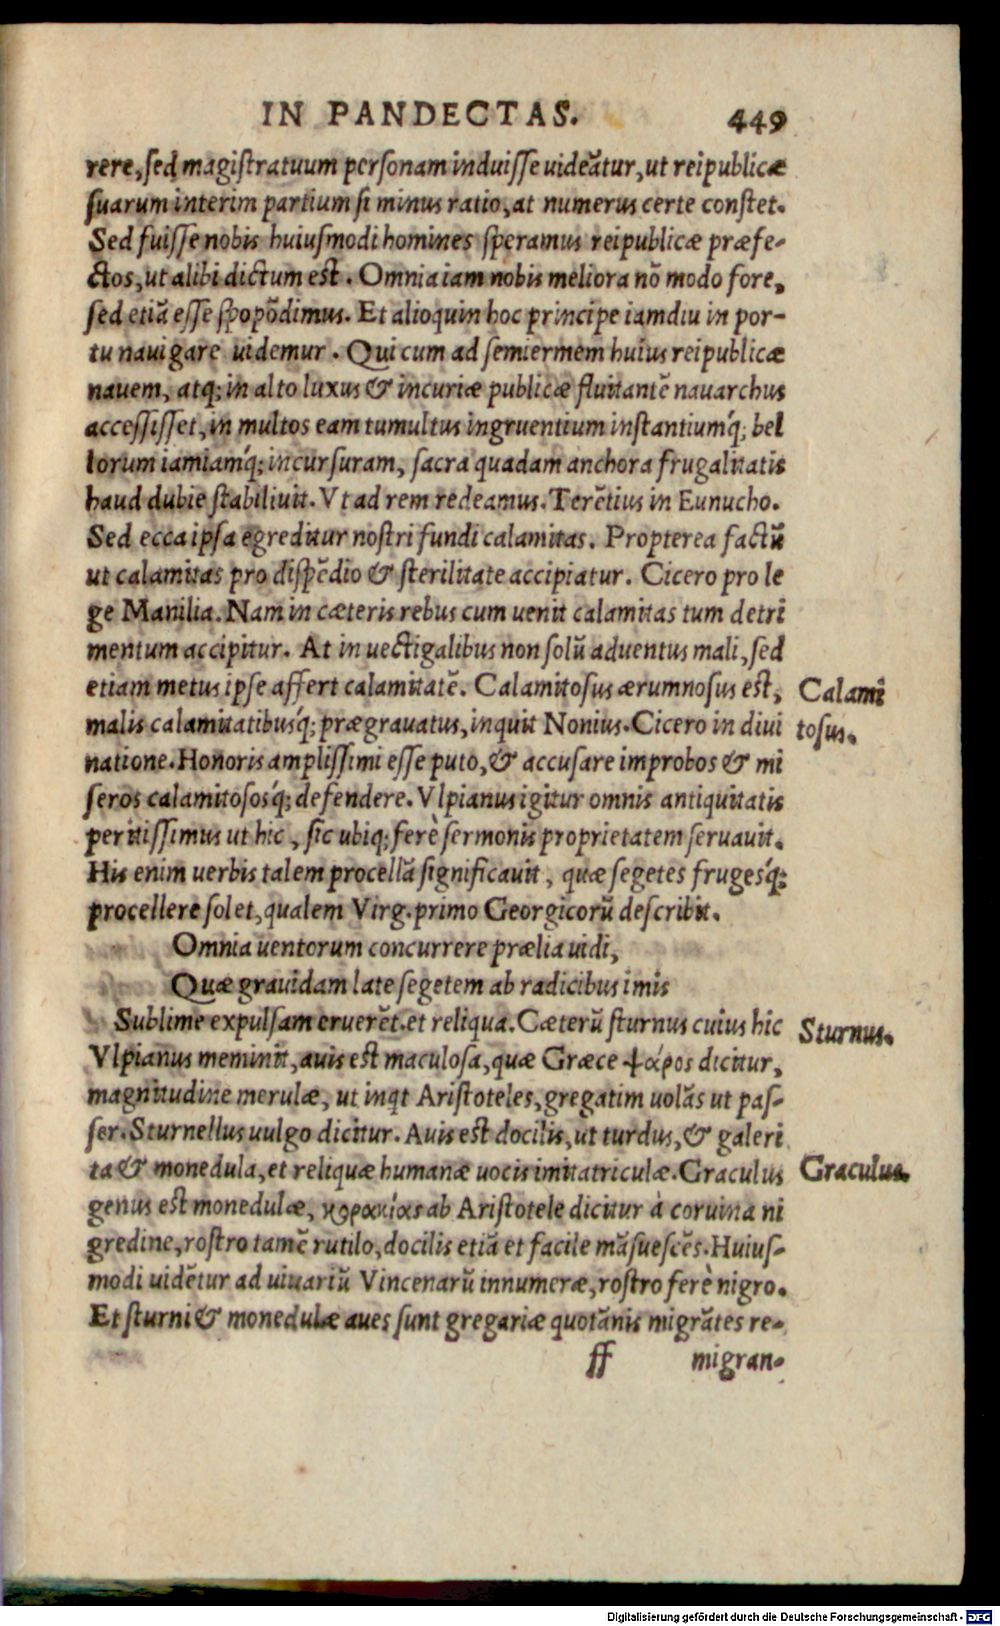 IN PANDECTAS. 449
rere, sed magistratuum personam induisse uideãtur, ut reipublicæ
suarum interim partium si minus ratio, at numerus certe constet.
Sed fuisse nobis huiusmodi homines speramus reipublicæ præfe-
ctos, ut alibi dictum est. Omnia iam nobis meliora nõ modo fore,
sed etiã esse spopõdimus. Et alioquin hoc principe iamdiu in por-
tu nauigare uidemur. Qui cum ad semiermem huius reipublicæ
nauem, atq; in alto luxus & incuriæ publicæ fluitantẽ nauarchus
accessisset, in multos eam tumultus ingruentium instantiumq́; bel
lorum iamiamq́; incursuram, sacra quadam anchora frugalitatis
haud dubie stabiliuit. Vt ad rem redeamus. Terẽtius in Eunucho.
Sed ecca ipsa egreditur nostri fundi calamitas. Propterea factũ
ut calamitas pro dispẽdio & sterilitate accipiatur. Cicero pro le
ge Manilia. Nam in cæteris rebus cum uenit calamitas tum detri
mentum accipitur. At in uectigalibus non solũ aduentus mali, sed
etiam metus ipse affert calamitatẽ. Calamitosus ærumnosus est,
Calami
malis calamitatibusq́; prægrauatus, inquit Nonius. Cicero in diui
tosus.
natione. Honoris amplissimi esse puto, & accusare improbos & mi
seros calamitososq́; defendere. Vlpianus igitur omnis antiquitatis
peritissimus ut hic, sic ubiq; ferè sermonis proprietatem seruauit.
His enim uerbis talem procellã significauit, quæ segetes frugesq́;
procellere solet, qualem Virg. primo Georgicorũ describit.
Omnia uentorum concurrere prælia uidi,
Quæ grauidam late segetem ab radicibus imis
Sublime expulsam eruerẽt. et reliqua. Cæterũ sturnus cuius hic
Sturnus.
Vlpianus meminit, auis est maculosa, quæ Græce ψάρος dicitur,
magnitudine merulæ, ut inqt Aristoteles, gregatim uolãs ut pas-
ser. Sturnellus uulgo dicitur. Auis est docilis, ut turdus, & galeri
ta & monedula, et reliquæ humanæ uocis imitatriculæ. Graculus
Graculus.
genus est monedulæ, κορακίας ab Aristotele dicitur à coruina ni
gredine, rostro tamẽ rutilo, docilis etiã et facile mãsuescẽs. Huius-
modi uidẽtur ad uiuariũ Vincenarũ innumeræ, rostro ferè nigro.
Et sturni & monedulæ aues sunt gregariæ quotãnis migrãtes re-
ff migran-
Digitalisierung gefördert durch die Deutsche Forschungsgemeinschaft - DFG